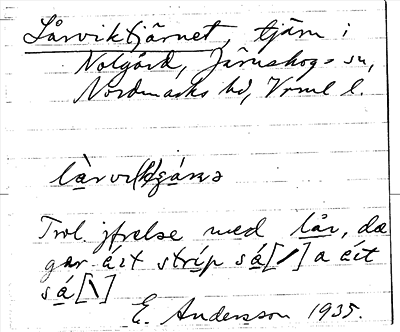 Lårviktjärnet, tjärn i
Nolgård, Järnskogs sn,
Nordmarks hd, Vrml l.
làrvi(k)çánə
Trol. jfrelse med lår, dä
gar äit stríp sá[/] a éit
sá[\]
E. Andersson 1935.